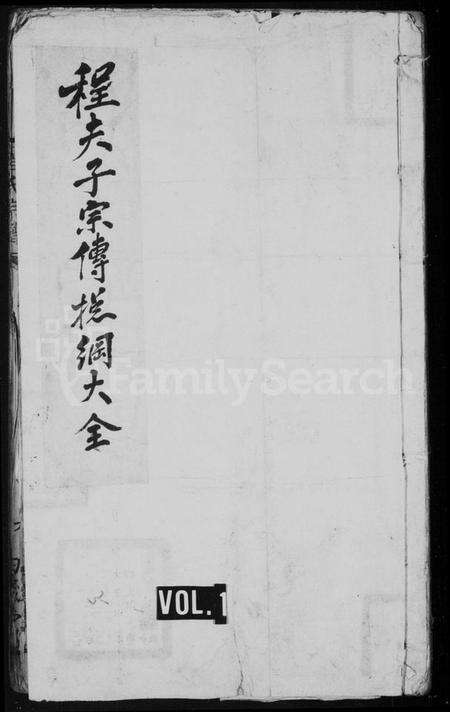 程夫子宗傳揔綱大全
FamilySearch
VOL. 1